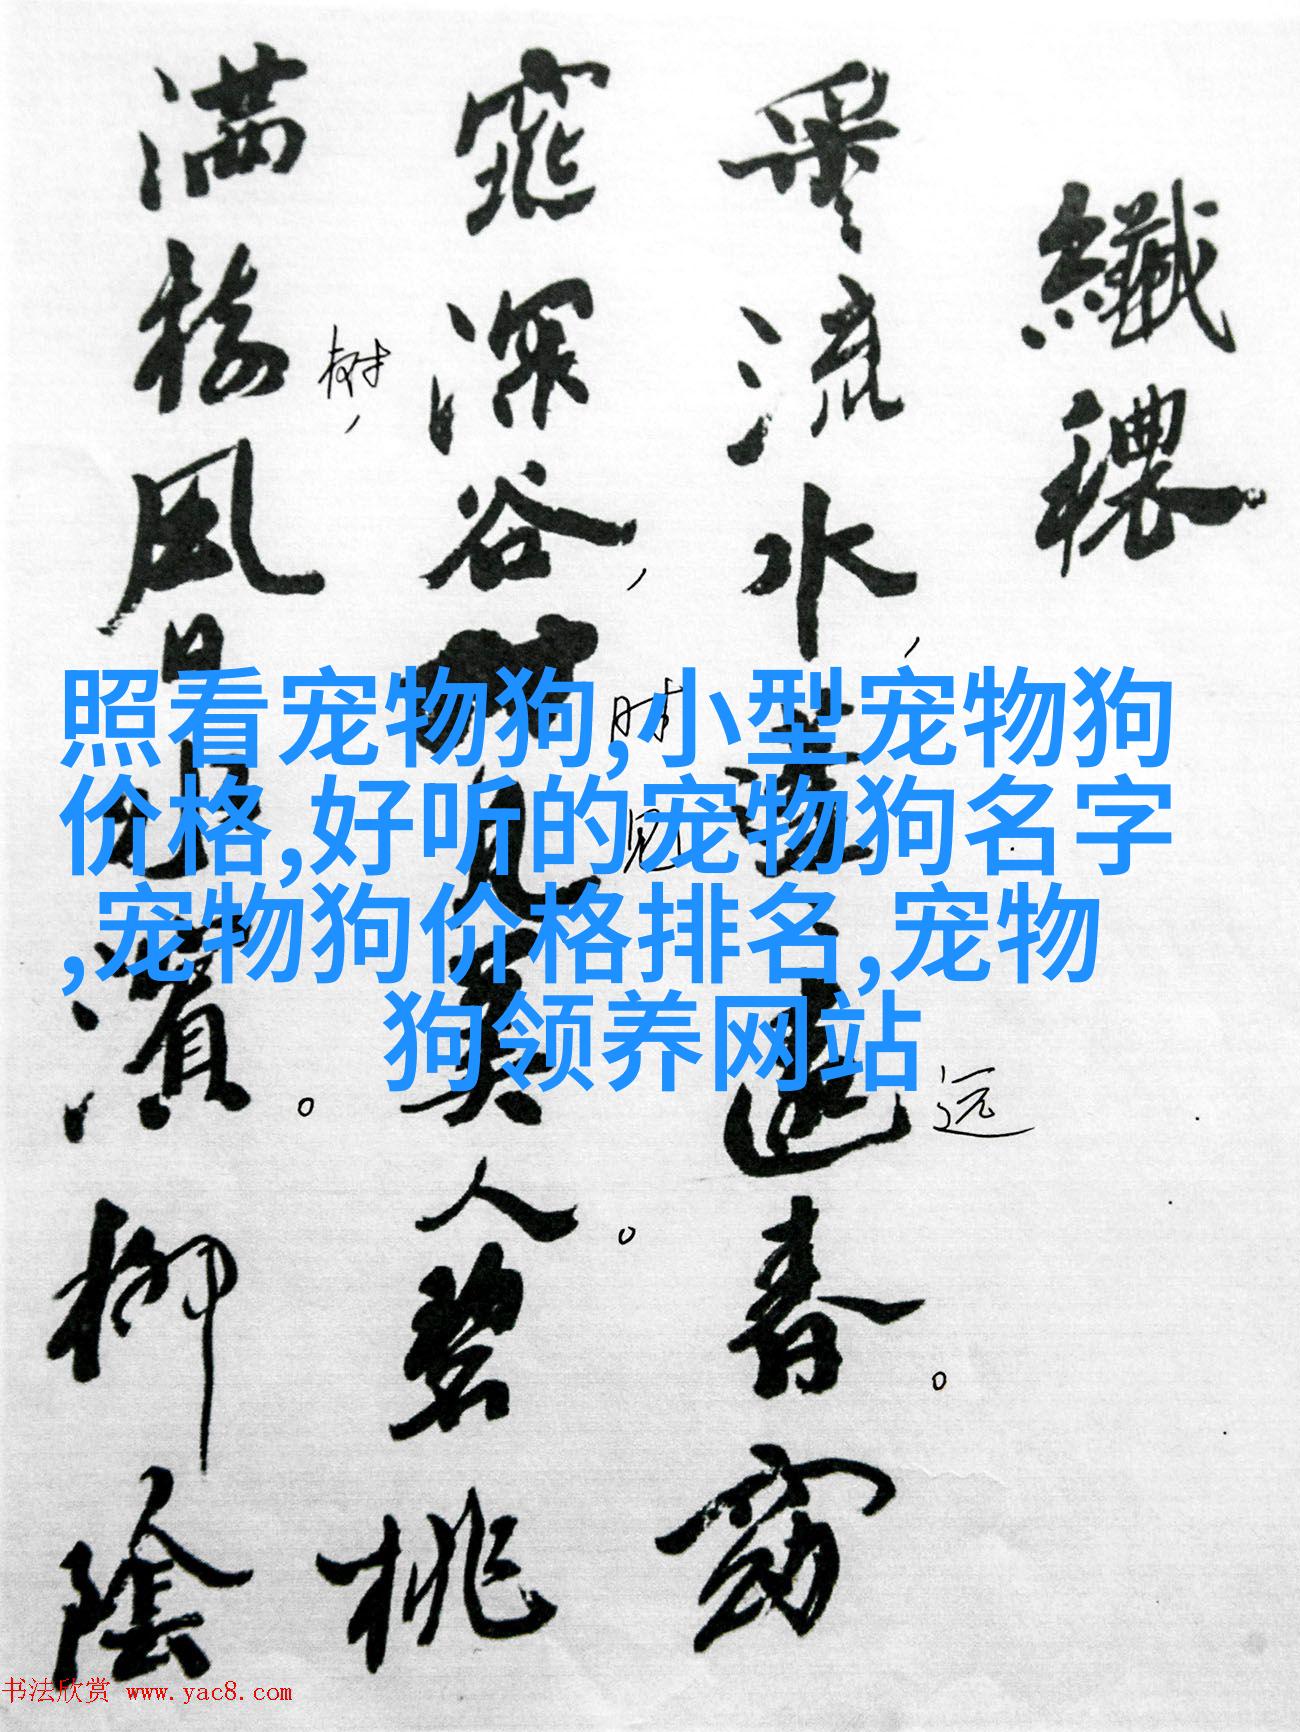 纖穠
采々流水，遠春。窈
远
窕深谷，時見美人。碧桃
时
见
满樹，風日水濱。柳陰
树
照看宠物狗,小型宠物狗
价格,好听的宠物狗名字
,宠物狗价格排名,宠物
狗领养网站
书法欣赏 www.yac8.com